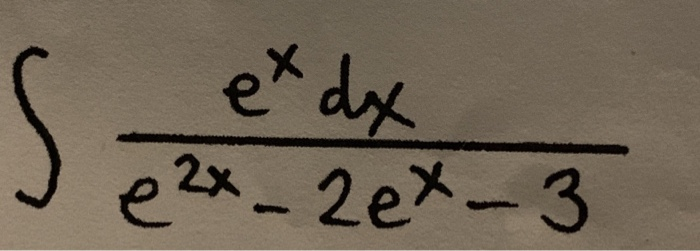 ∫ e^x dx / (e^{2x} - 2e^x - 3)